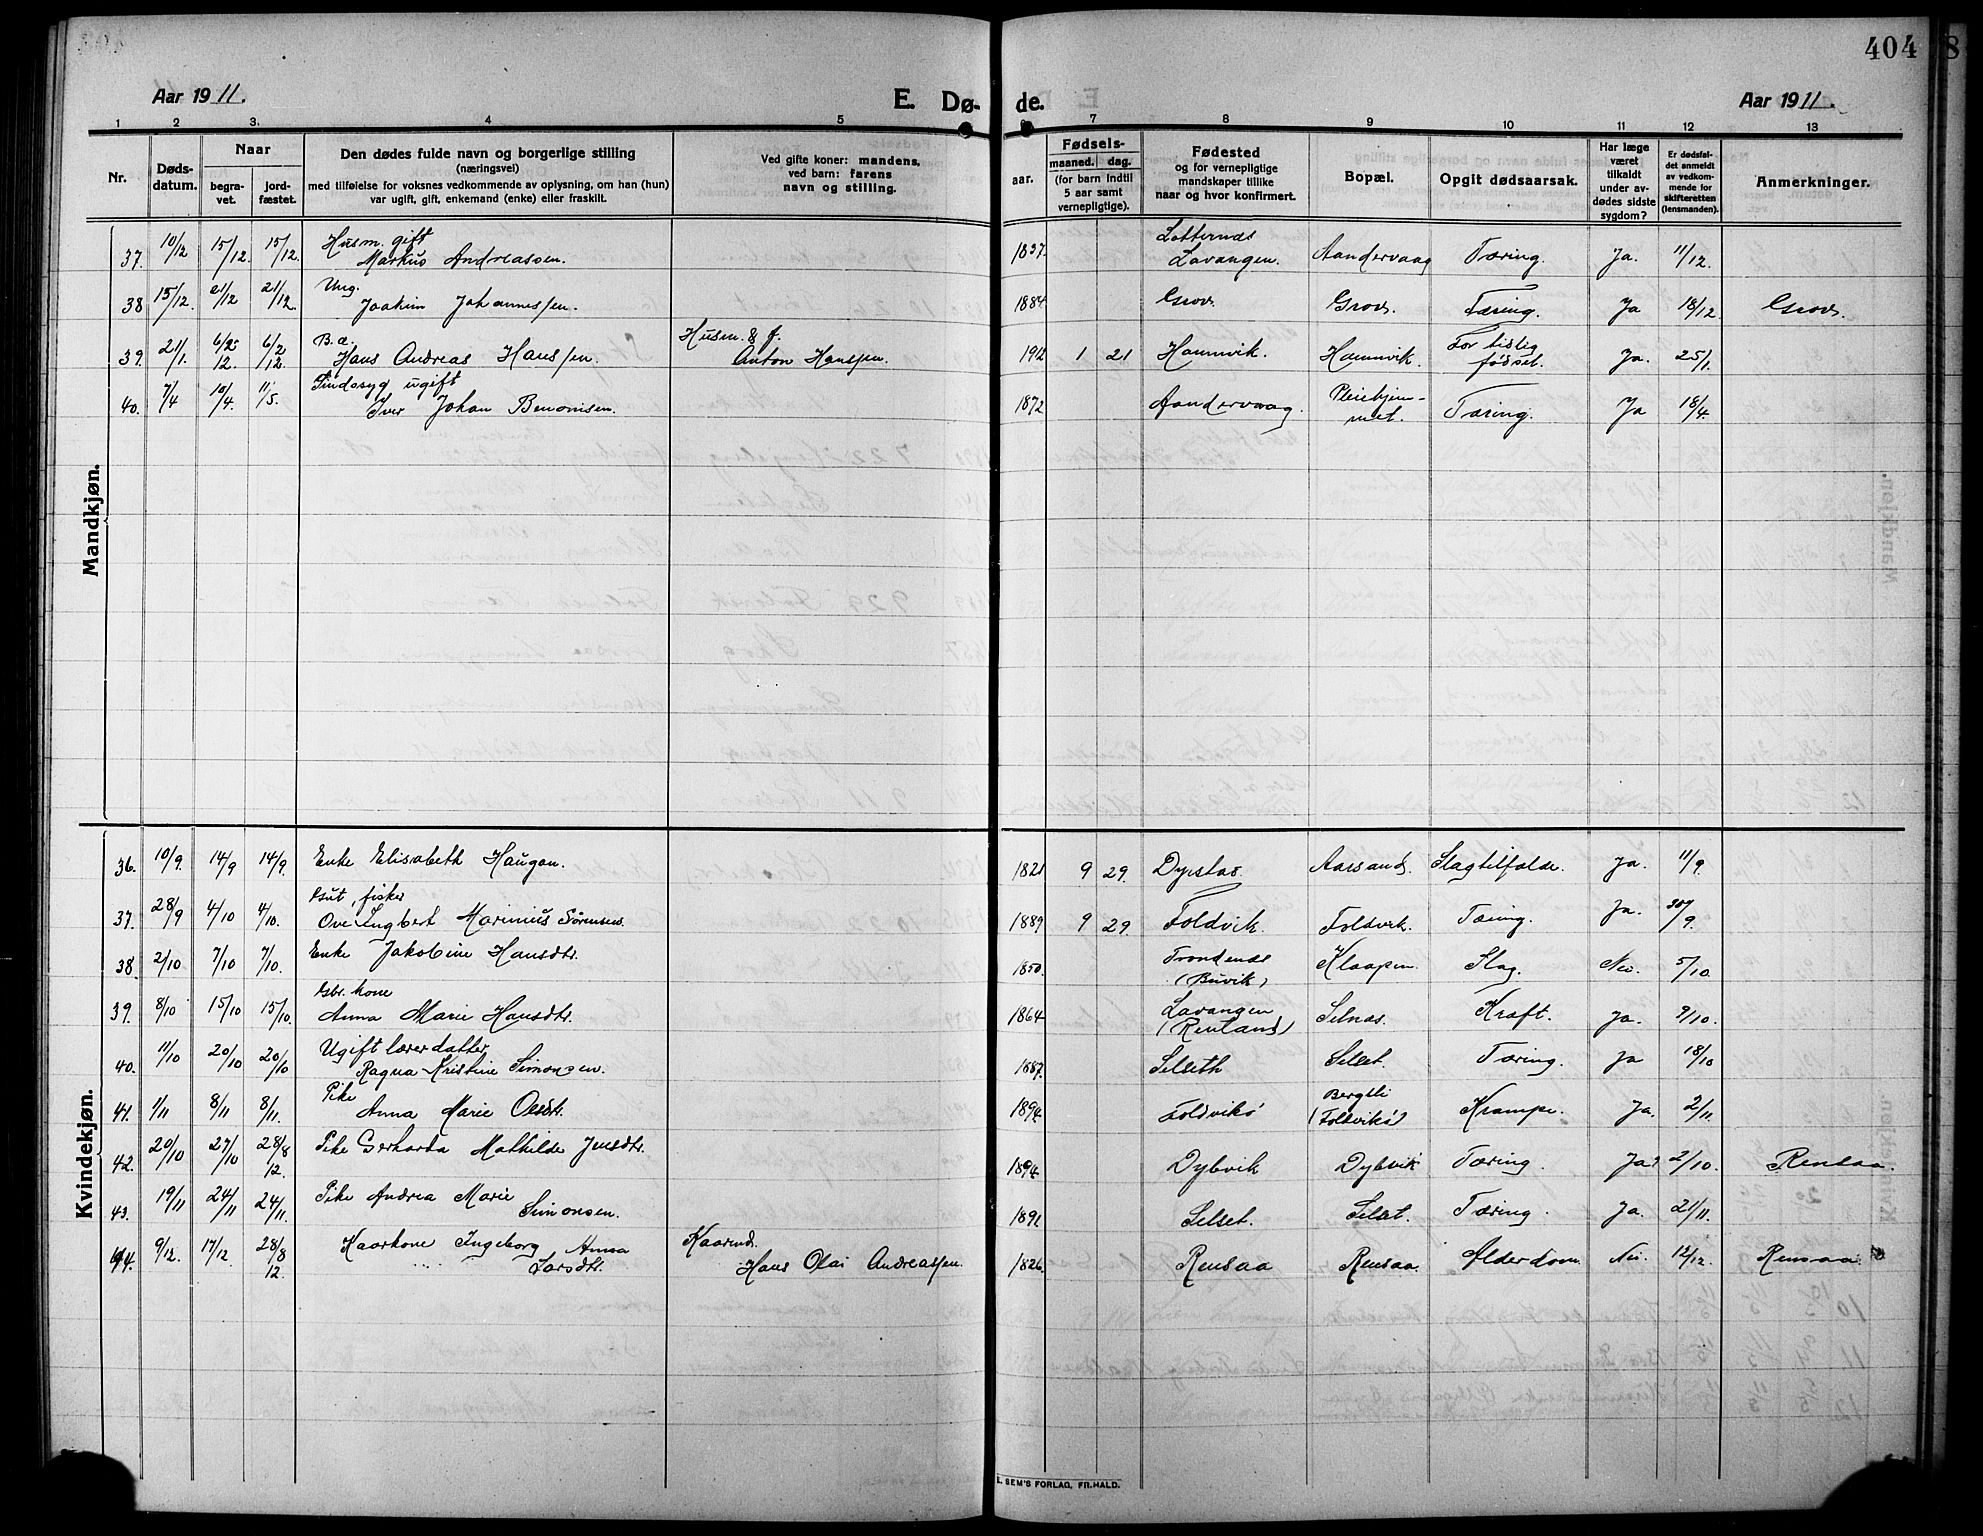 404
8
Aar 1911.
E. Dø-
de.
Aar 1911.
1 2 3. 4 5 7 8 9 10 11 12 13
Nr.
Døds-
datum.
Naar
begra-
vet.
jord-
fæstet.
Den dødes fulde navn og borgerlige stilling
(næringsvei)
med tilføielse for voksnes vedkommende av oplysning, om han (hun)
var ugift, gift, enkemand (enke) eller fraskilt.
Ved gifte koner: mandens,
ved barn: farens
navn og stilling.
Fødsels-
aar. maaned. dag.
(for barn indtil
5 aar samt
vernepligtige).
Fødested
og for vernepligtige
mandskaper tillike
naar og hvor konfirmert.
Bopæl.
Opgit dødsaarsak.
Har læge
været
tilkaldt
under av-
dødes sidste
sygdom?
Er dødsfal-
det anmeldt
av vedkom-
mende for
skifteretten
(lensmanden).
Anmerkninger.
Mandkjøn.
37. 10/12 15/12. 15/12. Husm. gift
Markus Andreassen. 1837. Lavangen. Aandervaag Tæring. Ja. 11/12.
38 15/12. 21/12 21/12. Ung.
Joakim Johannessen. 1884 Grov. Grov. Tæring. Ja 18/12. Grov.
39. 21/1. 6/2 12. 6/2 12. B. a.
Hans Andreas Hanssen. Husm. & f.
Anton Hanssen. 1912 1 21 Hamnvik. Hamnvik. For tidlig
fødsel. Ja. 25/1.
40. 7/4 10/4. 11/5. Sindssyg ugift
Iver Johan Benonisen. 1872 Aandervaag. Pleiehjem-
met. Tæring. Ja 18/4.
Kvindekjøn.
36. 10/9. 14/9 14/9. Enke Elisabeth Haugan. 1821 9 29. Dyrstad Aarsand. Slagtilfælde. Ja. 11/9.
37. 28/9 4/10 4/10. Gut, fisker
Ove Ingbert Marinius Sörensen. 1889 9 29. Foldvik. Foldvik. Tæring. Ja. 30/9.
38. 2/10 7/10 7/10. Enke Jakobine Hansdtr. 1850. Trondenes
(Buvik) Slag. Nei. 5/10.
39. 8/10 15/10 15/10. Gbr. kone
Anna Marie Hansdtr. 1864 Lavangen
(Renland) Selnæs. Kræft. Ja. 9/10.
40. 11/10 20/10 20/10 Ugift lærerdatter
Ragna Kristine Simonsen. 1887. Selseth Selset. Tæring. Ja 18/10
41. 1/11 8/11 8/11. Pike
Anna Marie Olsdtr. 1894. Foldvik Berglli
(Foldvik) Krampe. Ja. 2/11.
42. 20/10 27/10 28/8 12. Pike Gerharda Mathilde Jensdtr. 1894. Dybvik Dybvik Tæring. Ja? 2/10. Rensaa.
43. 19/11 24/11 24/11. Pike Andrea Marie
Simonsen. 1891. Selset. Selset. Tæring. Ja. 21/11.
44. 9/12. 17/12. 28/8 12. Kaarkone Ingeborg Anna
Larsdtr. Kaarmd.
Hans Olai Andreassen. 1826. Rensaa Rensaa. Alderdom. Nei. 12/12. Rensaa.
E. SEM'S FORLAG, FR.HALD.